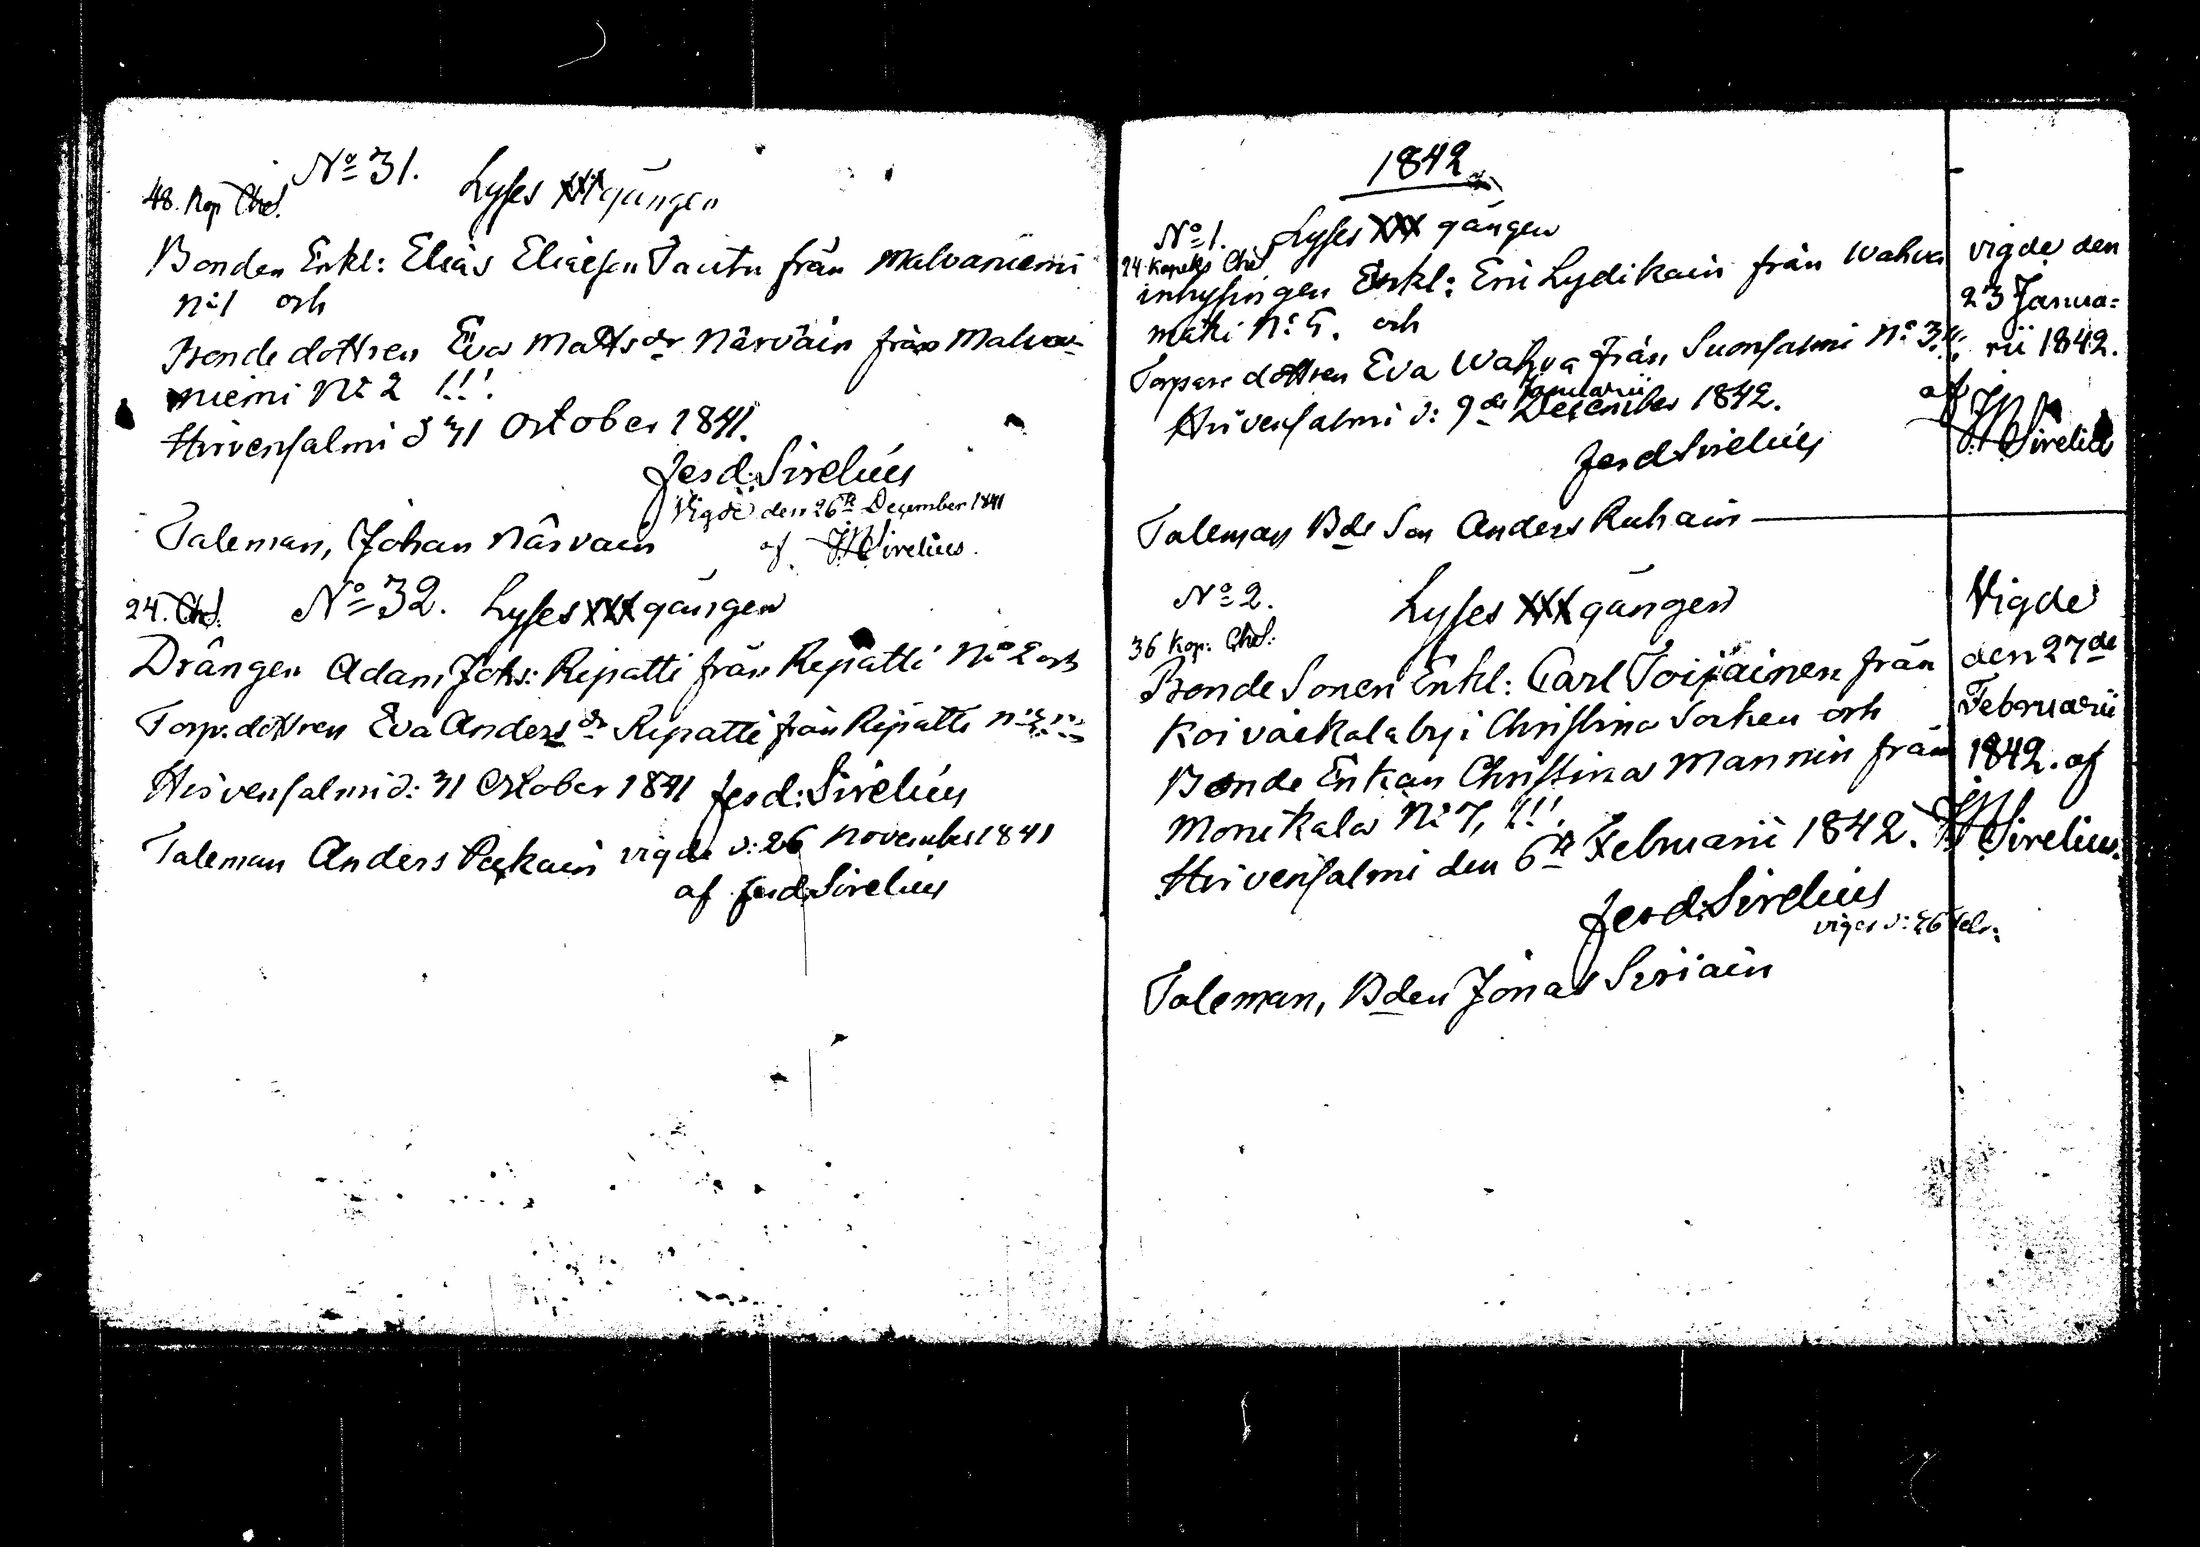 No 31. Lyses XXX gången
48. Kop Chol.
Bonden Enkl: Elias Eliasson Tautu från Malvaniemi
No 1 och
Bondedottren Eva Mattsdr Närväin från Malva-
niemi No 2 !!!
Hirvensalmi d 31 October 1841.
Ferd: Sirelius
Vigde den 26te December 1841
Taleman, Johan Närvain af JMSirelius.
24. Chol. No 32. Lyses XXX gången
Drängen Adam Johs: Ripatti från Ripatti No 2 och
Torp. dottren Eva Andersdr Ripatti från Ripatti
Hirvensalmi d: 31 October 1841 Ferd: Sirelius
Taleman Anders Pekain vigde d: 26 November 1841
af Ferd. Sirelius
1842
No 1. Lyses XXX gången
24 Kopeks Chol
inhysingen Enkl: Eric Lydikain från Wahva
mäki No 5. och
Torpare dottren Eva Wahva från Suonsalmi No 3.
Januarii
Hirvensalmi d: 9de December 1842.
Ferd Sirelius
Taleman Bde Son Anders Ruhain
vigde den
23 Janua-
rii 1842.
af
JMSirelius
No 2. Lyses XXX gången
36 Kop: Chol:
Bonde Sonen Enkl: Carl Toijainen från
Koiväkala by i Christina Socken och
Bonde Enkan Christina Mannin från
Monikala No 7, !!!
Hirvensalmi den 6te Februarii 1842.
Ferd: Sirelius
viges d: 26 Febr:
Taleman, Bden Jonas
Vigde
den 27de
Februarii
1842. af
JMSirelius.